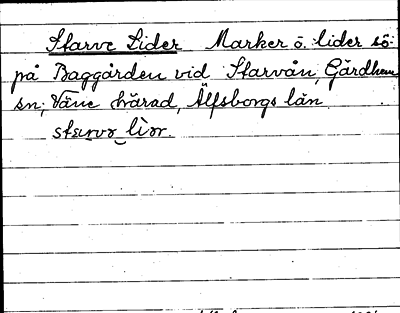 Starve Lider Marker o. lider sö.
på Baggården vid Starvån, Gärdhem
sn, Väne härad, Älfsborgs län